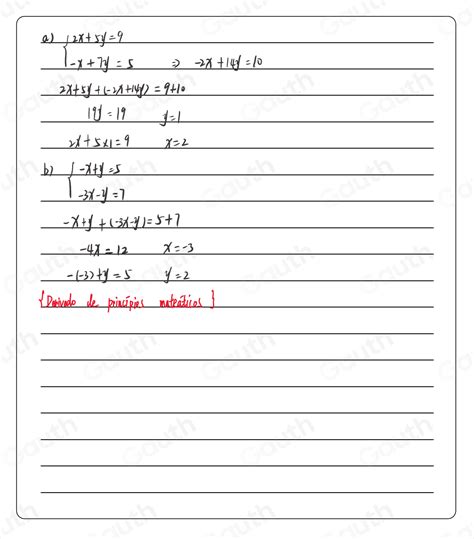 a) { 2x+5y=9
-x+7y=5 ⇒ -2x+14y=10
2x+5y+(-2x+14y)=9+10
19y=19 y=1
2x+5×1=9 x=2
b) { -x+y=5
-3x-y=7
-x+y+(-3x-y)=5+7
-4x=12 x=-3
-(-3)+y=5 y=2
{Derivado de principios mateáticos}
Gauth